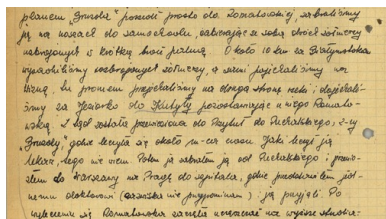 planem "Gruda" poszedł prosto do Romanowskiej, zabraliśmy
ją na noszach do samochodu, zabierając ze sobą dwóch żołnierzy
uzbrojonych w krótką broń palną. Około 10 km za Białymstokiem
uzbrojonych żołnierzy, a sami pojechaliśmy na
przejechaliśmy na drugą stronę rzeki i dojechali-
śmy za Jeziorko do Kubyty pozostawiając u niego Romanow-
ską. została przewieziona do do Pucharskiego, z-cy
"Grudy", gdzie leczyła się około m-ca czasu. Jaki leczył ją
lekarz, tego nie wiem. Potem ja zabrałem ją od Pucharskiego i przewio-
złem do Warszawy na Pragę do szpitala, gdzie pod
nemu doktorowi (nazwiska nie przypominam) ją przyjęli. Po
wyleczeniu się Romanowska zaczęła uczęszczać na wyższe studia